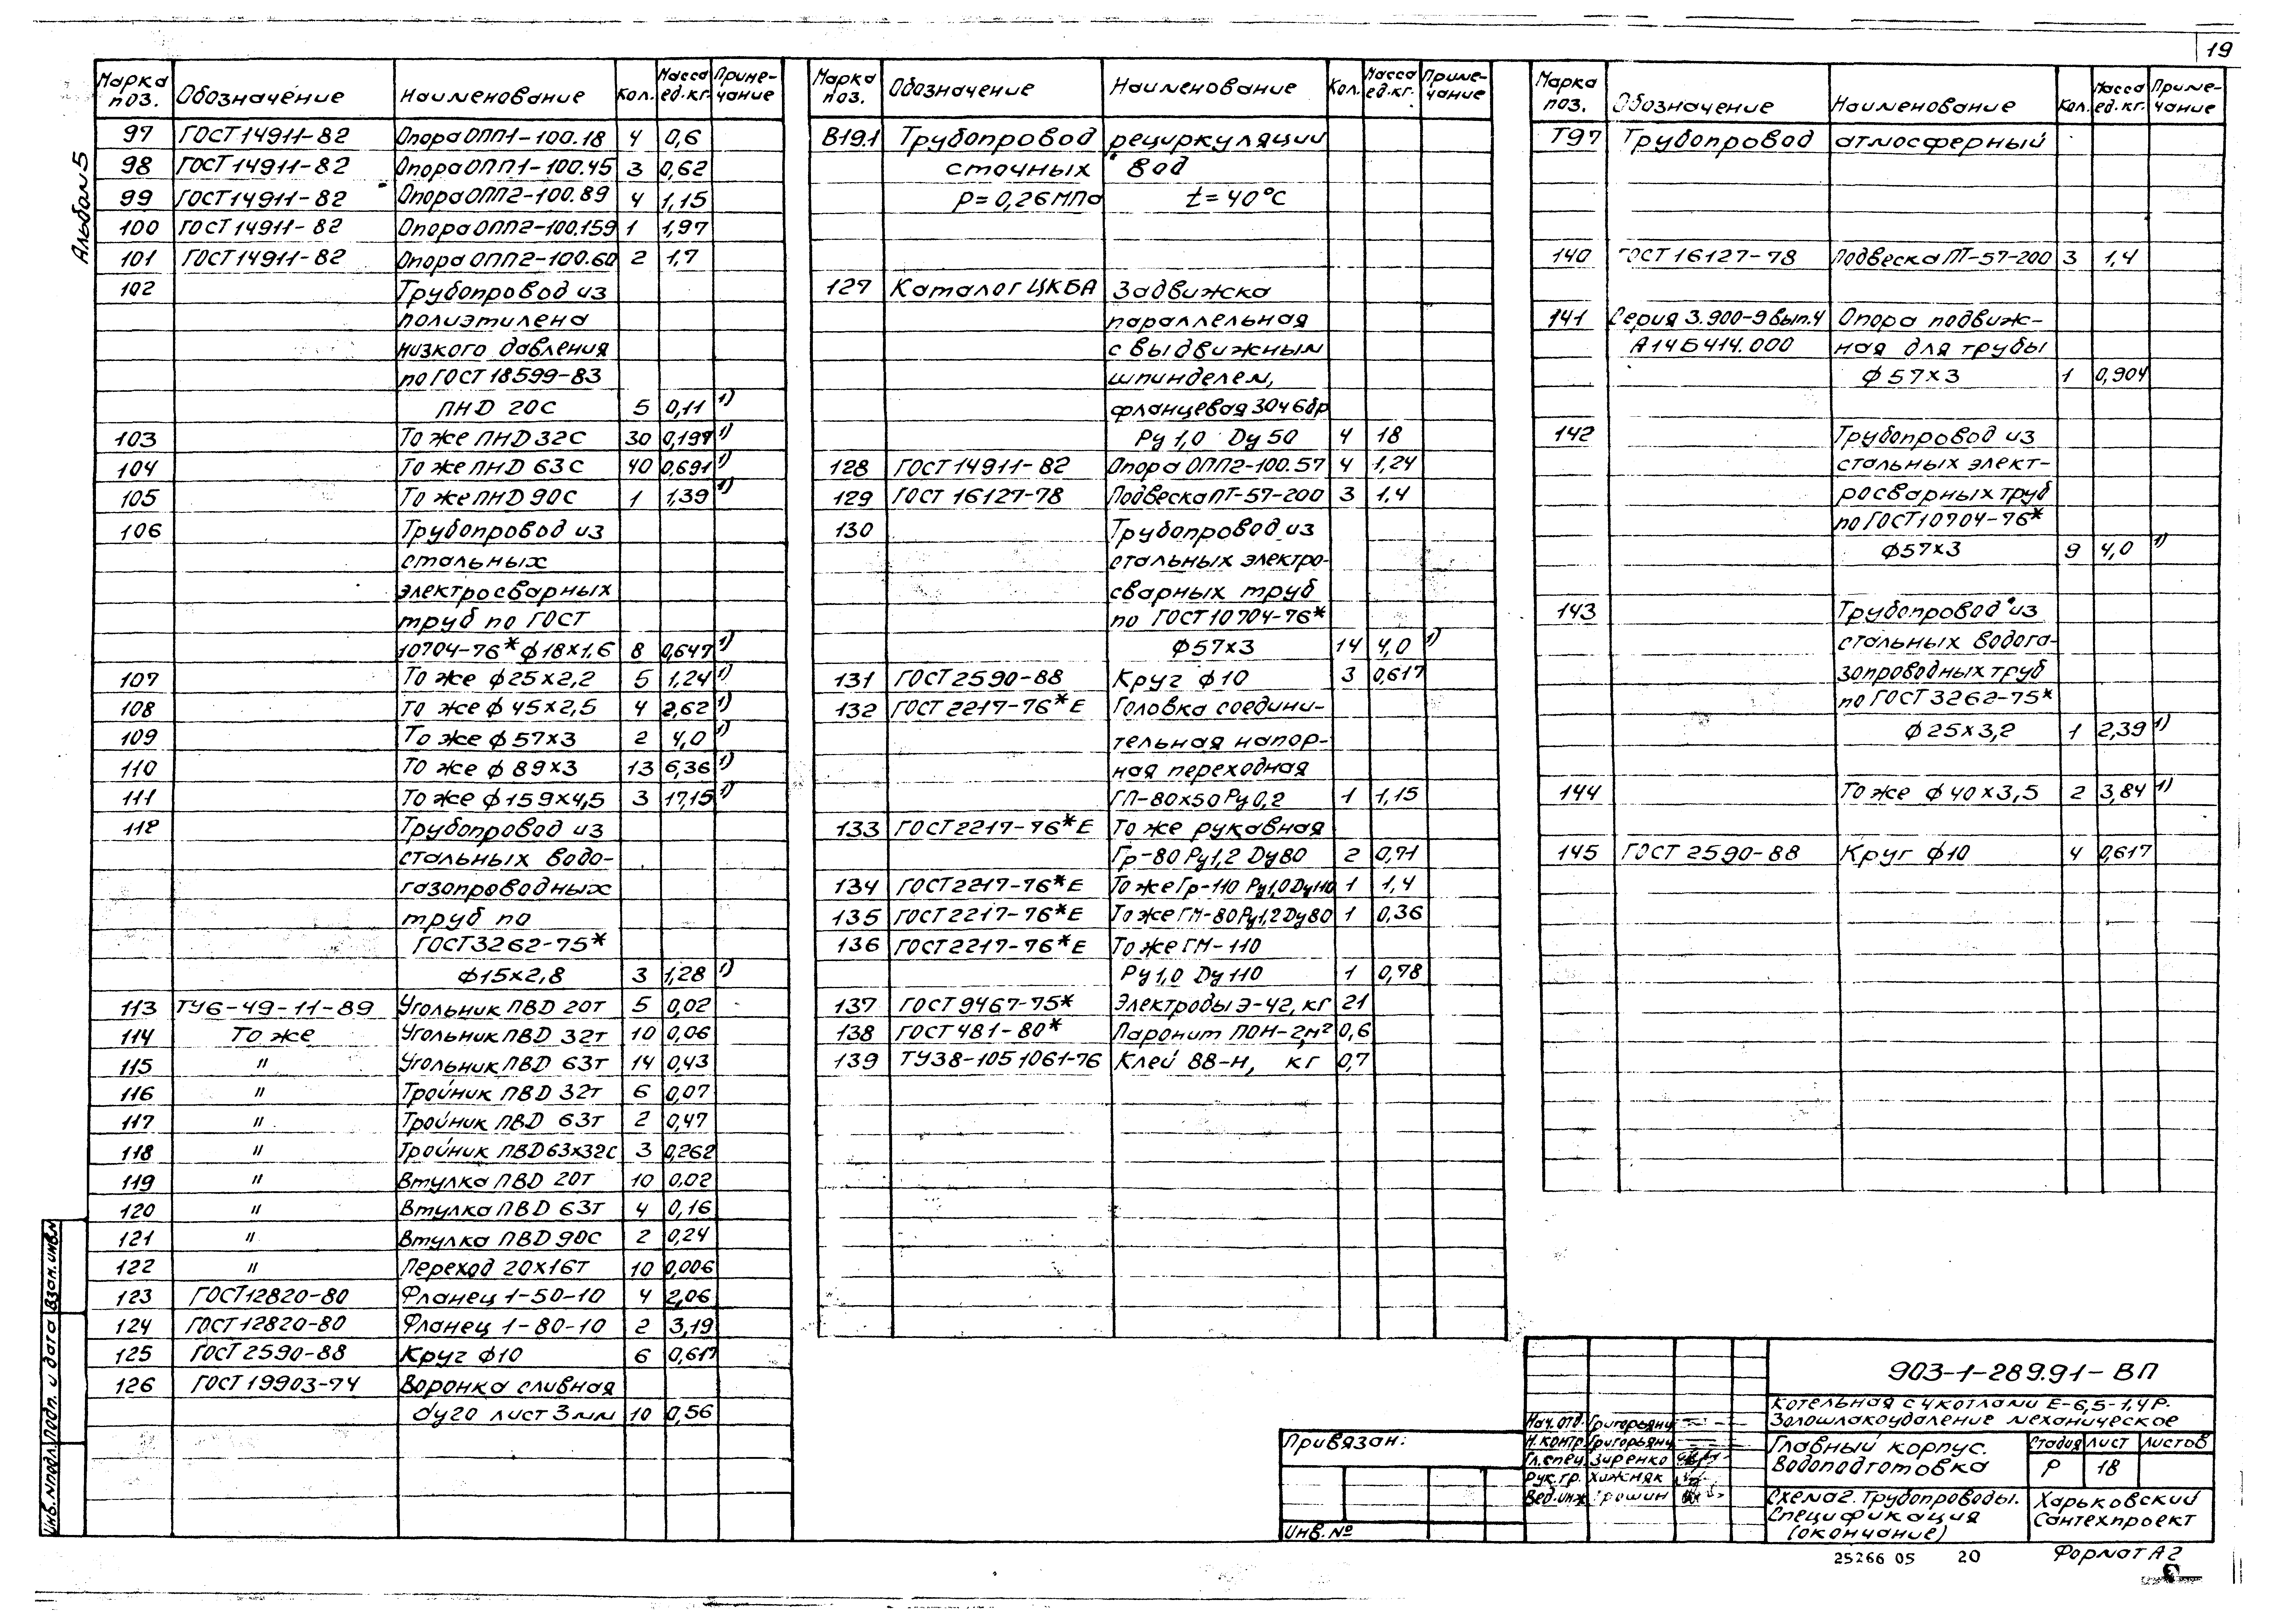 19
Альбом 5
Марка поз. Обозначение Наименование Кол. Масса ед.кг. Приме-чание
97 ГОСТ 14911-82 Опора ОПП1-100.18 4 0,6
98 ГОСТ 14911-82 Опора ОПП1-100.45 3 0,62
99 ГОСТ 14911-82 Опора ОПП2-100.89 4 1,15
100 ГОСТ 14911-82 Опора ОПП2-100.159 1 1,97
101 ГОСТ 14911-82 Опора ОПП2-100.60 2 1,7
102 Трубопровод из
полиэтилена
низкого давления
по ГОСТ 18599-83
ПНД 20С 5 0,11 1)
103 То же ПНД 32С 30 0,197 1)
104 То же ПНД 63С 40 0,691 1)
105 То же ПНД 90С 1 1,39 1)
106 Трубопровод из
стальных
электросварных
труб по ГОСТ
10704-76* ф18х1,6 8 0,647 1)
107 То же ф25х2,2 5 1,24 1)
108 То же ф45х2,5 4 2,62 1)
109 То же ф57х3 2 4,0 1)
110 То же ф89х3 13 6,36 1)
111 То же ф159х4,5 3 17,15 1)
112 Трубопровод из
стальных водо-
газопроводных
труб по
ГОСТ3262-75*
ф15х2,8 3 1,28 1)
113 ТУ6-49-11-89 Угольник ПВД 20Т 5 0,02
114 То же Угольник ПВД 32Т 10 0,06
115 " Угольник ПВД 63Т 14 0,43
116 " Тройник ПВД 32Т 6 0,07
117 " Тройник ПВД 63Т 2 0,47
118 " Тройник ПВД 63х32С 3 0,262
119 " Втулка ПВД 20Т 10 0,02
120 " Втулка ПВД 63Т 4 0,16
121 " Втулка ПВД 90С 2 0,24
122 " Переход 20х16Т 10 0,006
123 ГОСТ12820-80 Фланец 1-50-10 4 2,06
124 ГОСТ12820-80 Фланец 1-80-10 2 3,19
125 ГОСТ 2590-88 Круг ф10 6 0,617
126 ГОСТ 19903-74 Воронка сливная
dу20 лист 3мм 10 0,56
Марка поз. Обозначение Наименование Кол. Масса ед.кг. Приме-чание
В19.1 Трубопровод рециркуляции
сточных вод
Р=0,26МПа t=40°С
127 Каталог ЦКБА Задвижка
параллельная
с выдвижным
шпинделем,
фланцевая 30ч6бр
Ру 1,0 Dу 50 4 18
128 ГОСТ 14911-82 Опора ОПП2-100.57 4 1,24
129 ГОСТ 16127-78 Подвеска ПТ-57-200 3 1,4
130 Трубопровод из
стальных электро-
сварных труб
по ГОСТ 10704-76*
ф57х3 14 4,0 1)
131 ГОСТ 2590-88 Круг ф10 3 0,617
132 ГОСТ 2217-76*Е Головка соедини-
тельная напор-
ная переходная
ГП-80х50 Ру 0,2 1 1,15
133 ГОСТ2217-76*Е То же рукавная
Гр-80 Ру1,2 Dу80 2 0,71
134 ГОСТ2217-76*Е То же Гр-110 Ру1,0 Dу110 1 1,4
135 ГОСТ2217-76*Е То же ГМ-80 Ру1,2 Dу80 1 0,36
136 ГОСТ2217-76*Е То же ГМ-110
Ру 1,0 Dу 110 1 0,78
137 ГОСТ 9467-75* Электроды Э-42, кг 21
138 ГОСТ 481-80* Паронит ПОН-2,м² 0,6
139 ТУ38-1051061-76 Клей 88-Н, кг 0,7
Марка поз. Обозначение Наименование Кол. Масса ед.кг. Приме-чание
Т97 Трубопровод атмосферный
140 ГОСТ 16127-78 Подвеска ПТ-57-200 3 1,4
141 Серия 3.900-9 вып.4 Опора подвиж-
А14Б414.000 ная для трубы
ф57х3 1 0,904
142 Трубопровод из
стальных элект-
росварных труб
по ГОСТ10704-76*
ф57х3 9 4,0 1)
143 Трубопровод из
стальных водога-
зопроводных труб
по ГОСТ 3262-75*
ф25х3,2 1 2,39 1)
144 То же ф40х3,5 2 3,84 1)
145 ГОСТ 2590-88 Круг ф10 4 0,617
Взам.инв.N
Подп. и дата
Инв.Nподл.
Привязан:
Инв. №
Нач.отд. Григорьянц
Н.контр. Григорьянц
Гл.спец. Зиренко
Рук.гр. Хижняк
Вед.инж.
903-1-289.91-ВП
Котельная с 4 котлами Е-6,5-1,4Р.
Золошлакоудаление механическое
Главный корпус.
Водоподготовка
Стадия Лист Листов
Р 18
Схема 2. Трубопроводы.
Спецификация
(окончание)
Харьковский
Сантехпроект
25266 05 20
Формат А2